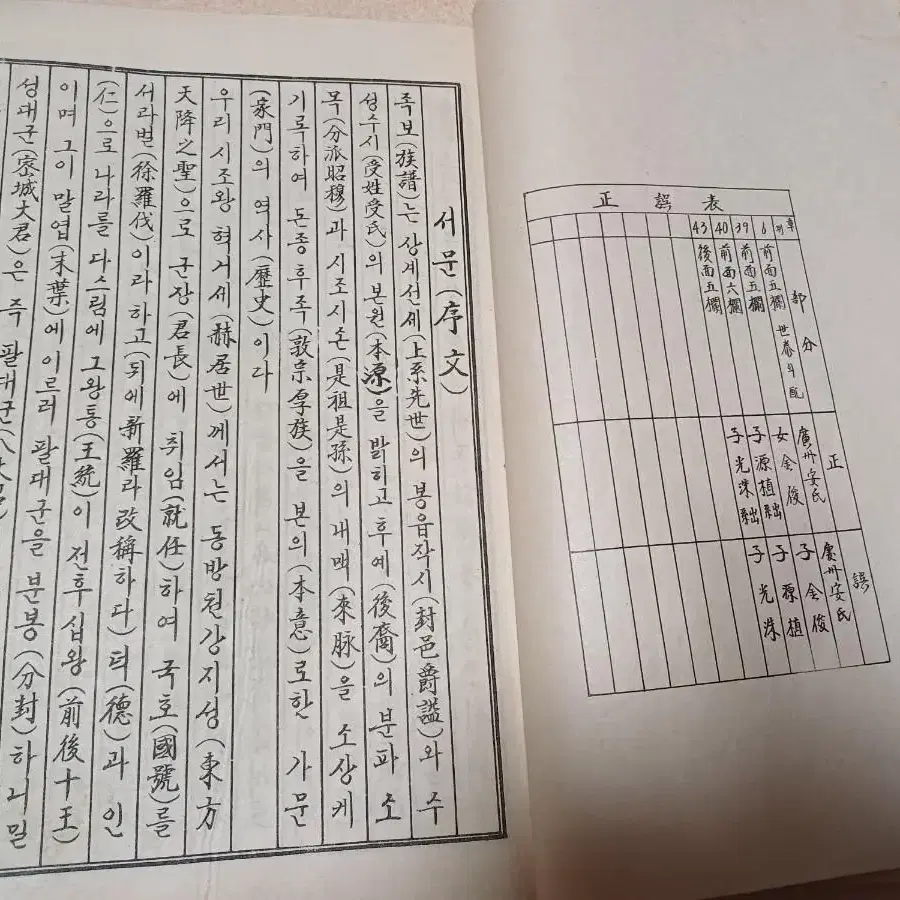 正誤表
部分
正
誤
6
前面五欄
世泰斗配
廣州安氏
廣州安氏
39
前面五欄
女金俊
子金俊
40
前面六欄
子源植絀
子源植
43
後面五欄
子光洙絀
子光洙
서문(序文)
족보(族譜)는 상계선세(上系先世)의 봉읍작시(封邑爵諡)와 수
성수시(受姓受氏)의 본원(本源)을 밝히고 후예(後裔)의 분파 소
목(分派昭穆)과 시조시손(是祖是孫)의 내맥(來脉)을 소상케
기록하여 돈종후족(敦宗厚族)을 본의(本意)로한 가문
(家門)의 역사(歷史)이다
우리 시조왕 혁거세(赫居世)께서는 동방천강지성(東方
天降之聖)으로 군장(君長)에 취임(就任)하여 국호(國號)를
서라벌(徐羅伐)이라 하고(뒤에新羅라改稱하다) 덕(德)과 인
(仁)으로 나라를 다스림에 그왕통(王統)이 전후십왕(前後十王)
이며 그이 말엽(末葉)에 이르러 팔대군을 분봉(分封)하니 밀
성대군(密城大君)은 즉 팔대군(八大君)